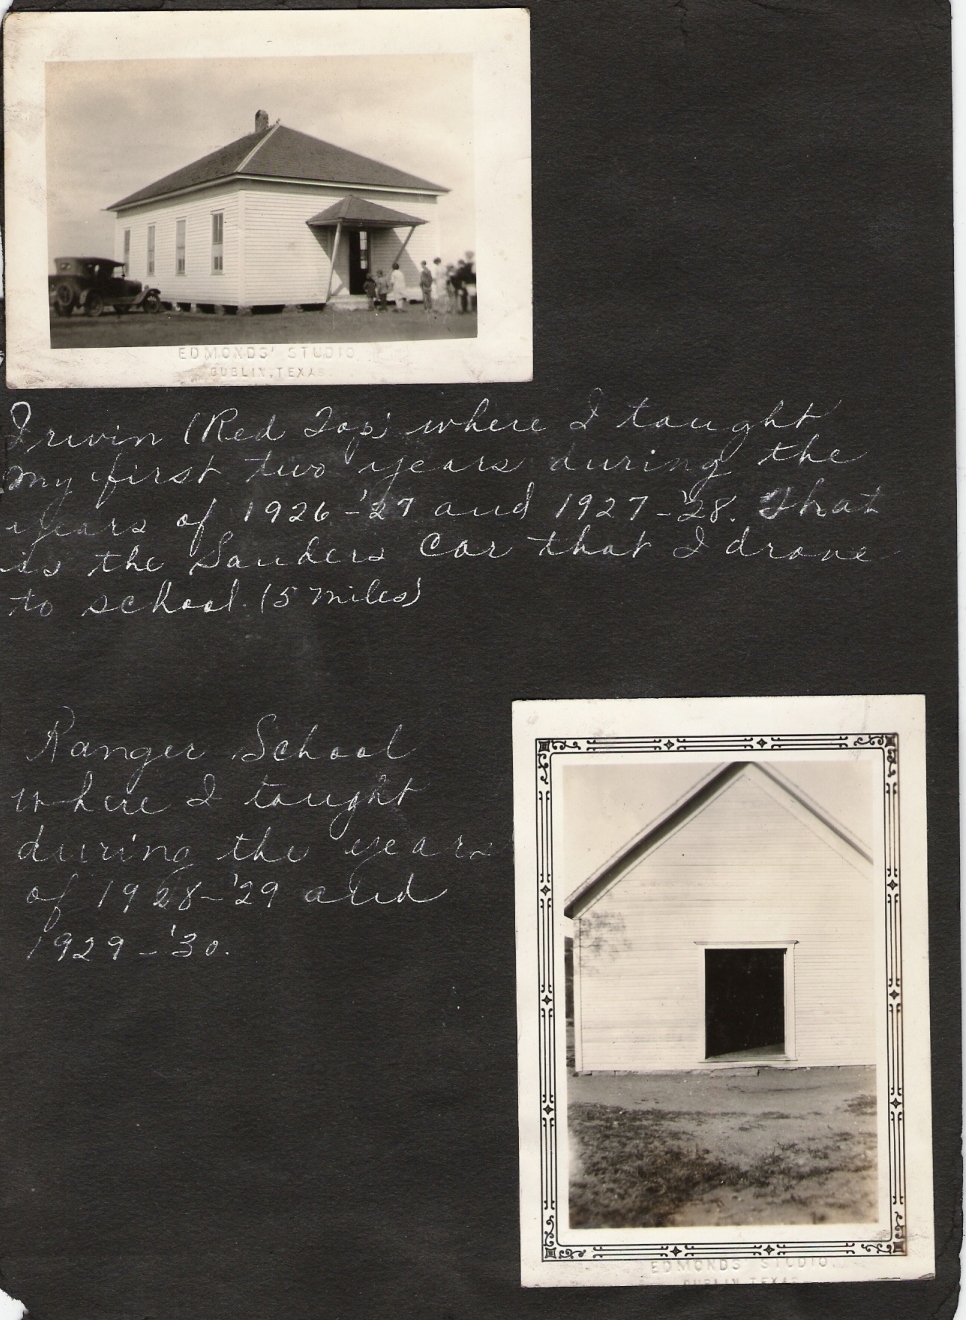 EDMONDS' STUDIO
DUBLIN, TEXAS.
Irwin (Red Top) where I taught
my first two years during the
years of 1926-'27 and 1927-'28. That
is the Sanders Car that I drove
to school. (5 miles)
Ranger School
where I taught
during the years
of 1928-'29 and
1929-'30.
EDMONDS' STUDIO.
DUBLIN, TEXAS.